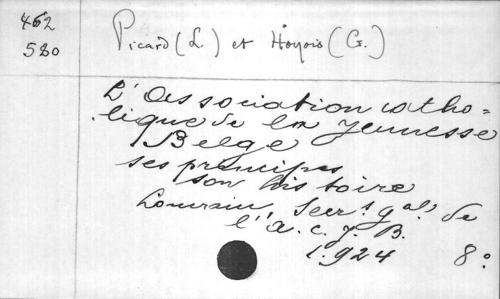 462
580
Picard (L.) et Hoyois (G.)
L'Association catho=
lique de la Jeunesse
Belge
ses principes
son histoire
Louvain, Secr.t g.al de
l'A. C. J. B.
1.924 8°